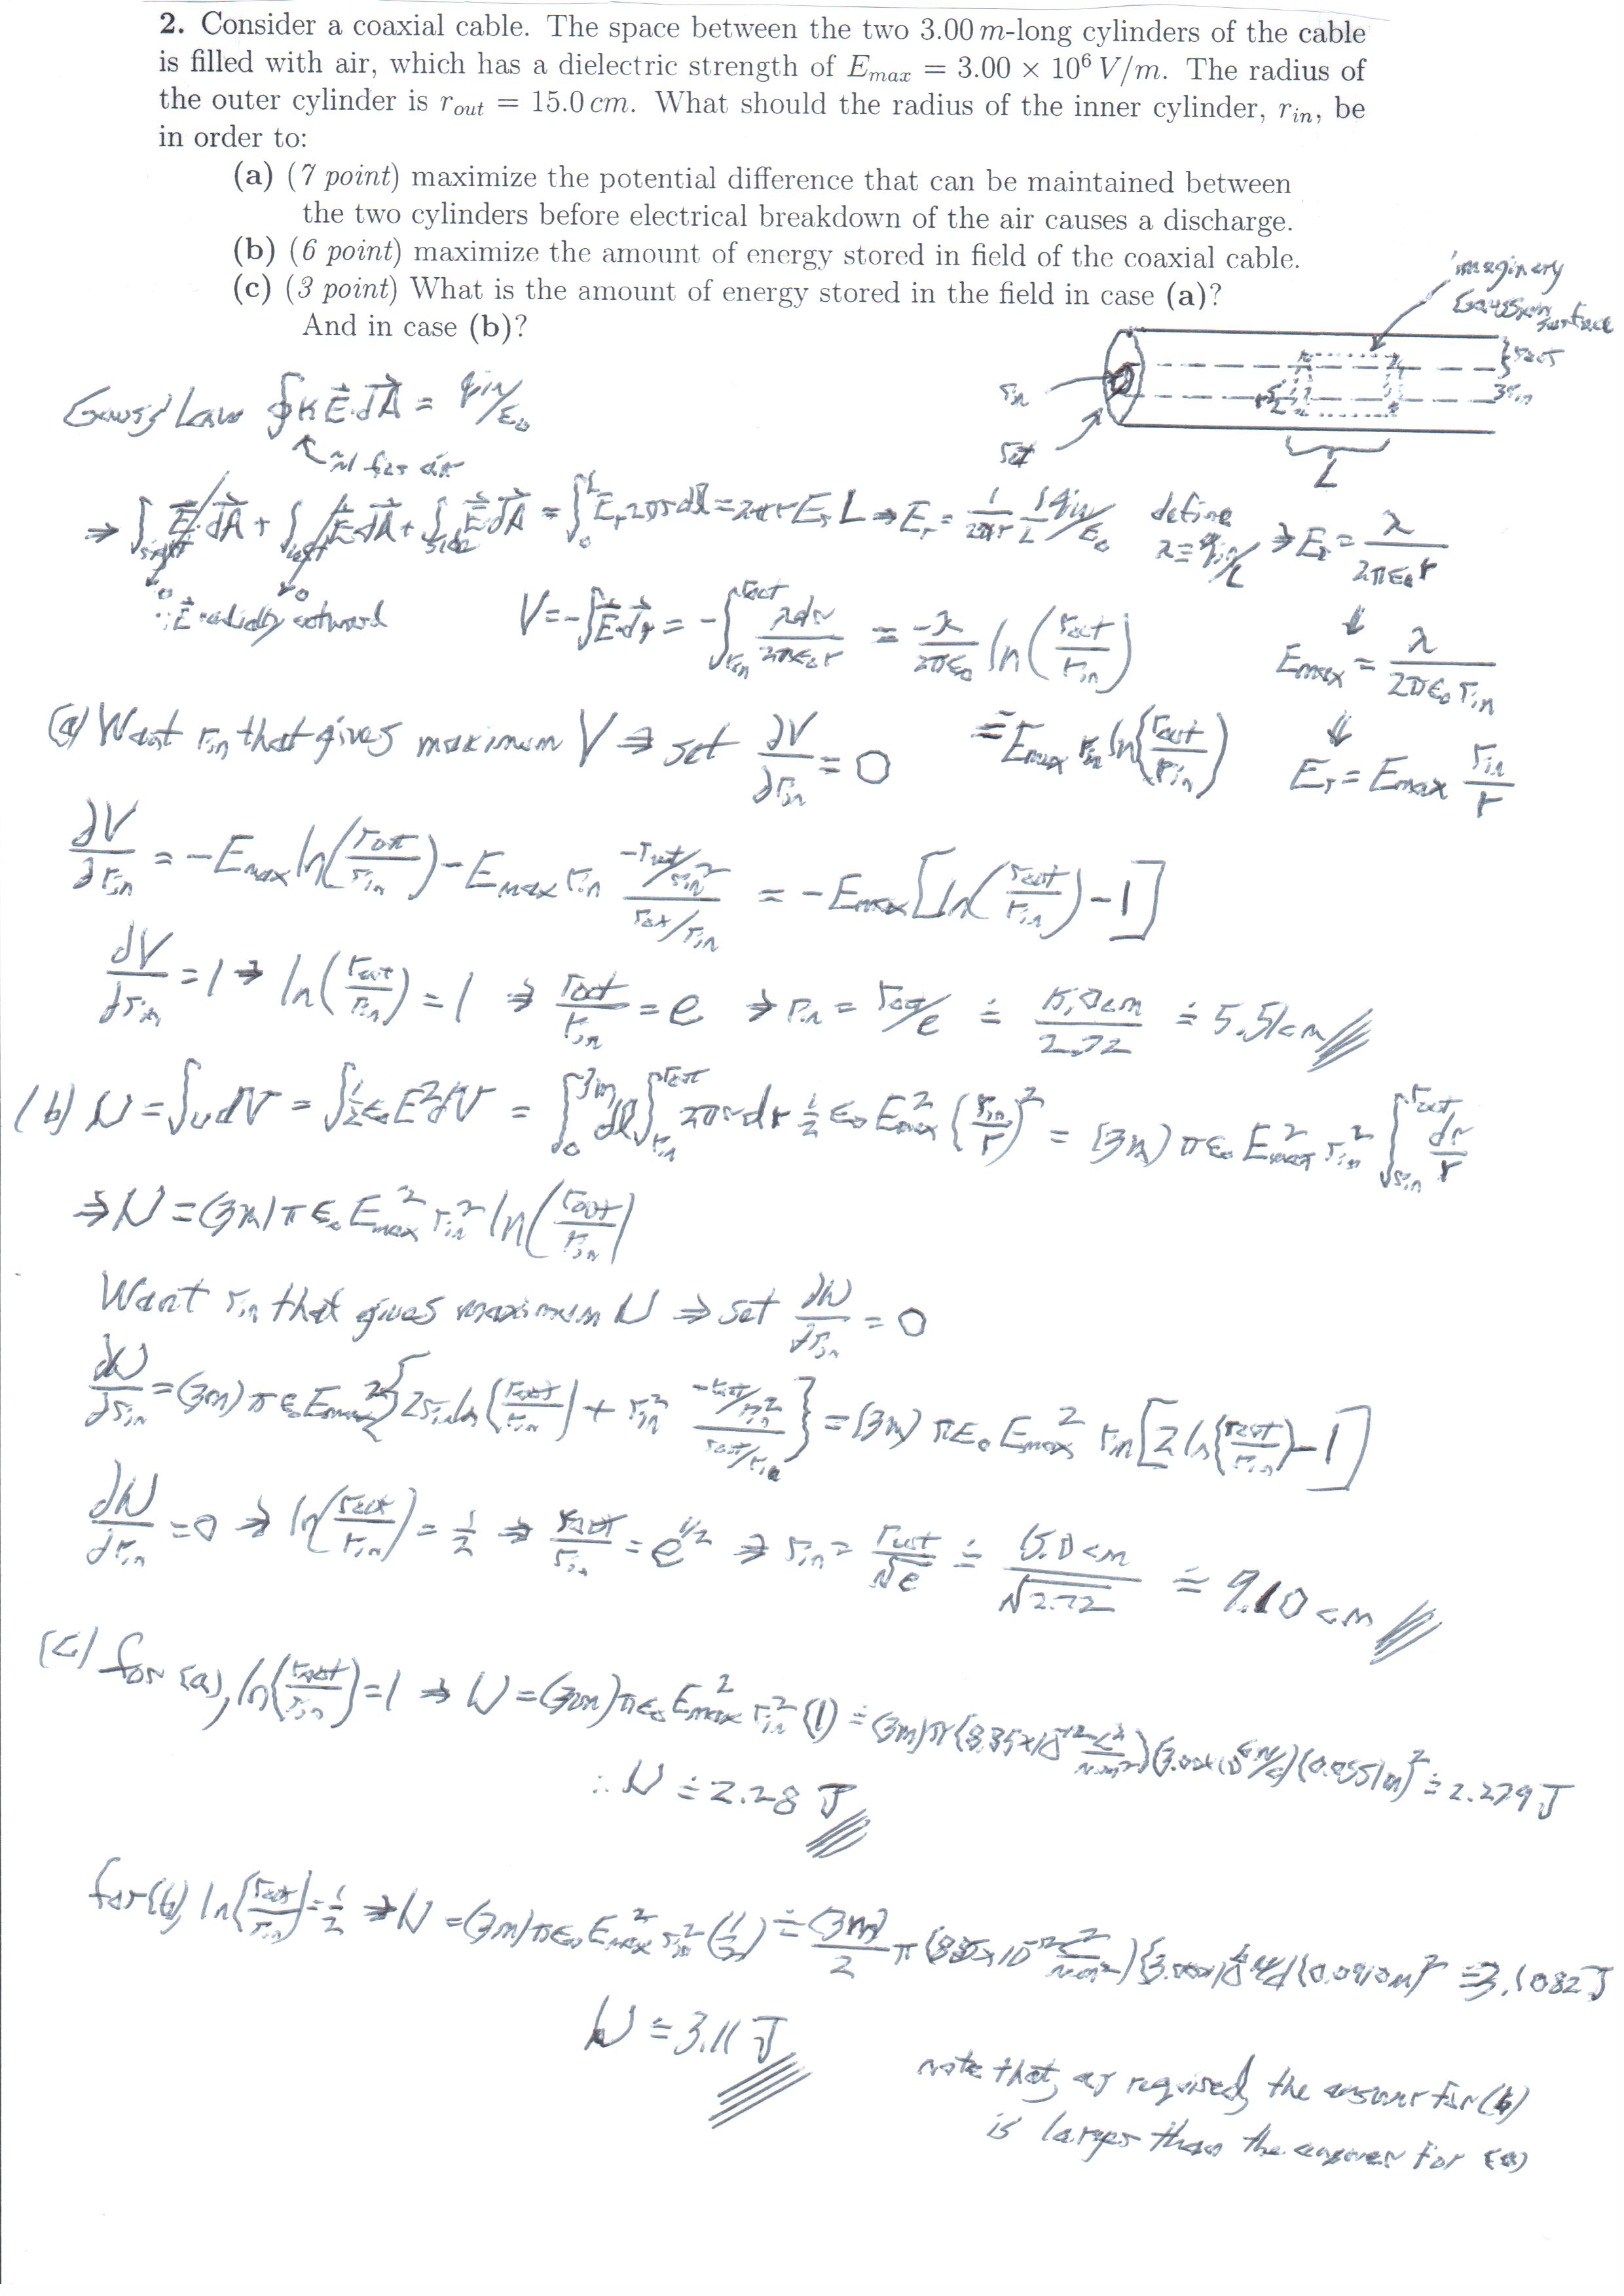 2. Consider a coaxial cable. The space between the two 3.00 m-long cylinders of the cable
is filled with air, which has a dielectric strength of E_max = 3.00 × 10⁶ V/m. The radius of
the outer cylinder is r_out = 15.0 cm. What should the radius of the inner cylinder, r_in, be
in order to:
(a) (7 point) maximize the potential difference that can be maintained between
the two cylinders before electrical breakdown of the air causes a discharge.
(b) (6 point) maximize the amount of energy stored in field of the coaxial cable.
(c) (3 point) What is the amount of energy stored in the field in case (a)?
And in case (b)?
imaginery
Gaussian surface
r_out
r_in
r_in
r_out
L
Gauss' Law ∮κE⃗·dA⃗ = q_in/ε₀
≈1 for air
⇒ ∫_right E⃗·dA⃗ + ∫_left E⃗·dA⃗ + ∫_side E⃗·dA⃗ = ∫₀^L E_r 2πr dl = 2πr E_r L ⇒ E_r = 1/(2πr) 1/L q_in/ε₀ define λ ≡ q_in/L ⇒ E_r = λ/(2πε₀r)
0 0
∵ E⃗ radially outward
V = -∫E⃗·dr⃗ = -∫_{r_in}^{r_out} λdr/(2πε₀r) = -λ/(2πε₀) ln(r_out/r_in)
⇓ E_max = λ/(2πε₀ r_in)
(a) Want r_in that gives maximum V ⇒ set ∂V/∂r_in = 0
= -E_max r_in ln(r_out/r_in)
⇓ E_r = E_max r_in/r
∂V/∂r_in = -E_max ln(r_out/r_in) - E_max r_in (-r_out/r_in²)/(r_out/r_in) = -E_max [ln(r_out/r_in) - 1]
dV/dr_in = 1 ⇒ ln(r_out/r_in) = 1 ⇒ r_out/r_in = e ⇒ r_in = r_out/e ≐ 15.0cm/2.72 ≐ 5.51cm
(b) W = ∫u dV = ∫½ε₀E²dV = ∫₀^{3m} dl ∫_{r_in}^{r_out} 2πr dr ½ ε₀ E_max² (r_in/r)² = (3m) πε₀ E_max² r_in² ∫_{r_in}^{r_out} dr/r
⇒ W = (3m) π ε₀ E_max² r_in² ln(r_out/r_in)
Want r_in that gives maximum W ⇒ set dW/dr_in = 0
dW/dr_in = (3m) π ε₀ E_max² {2r_in ln(r_out/r_in) + r_in² (-r_out/r_in²)/(r_out/r_in)} = (3m) πε₀ E_max² r_in [2 ln(r_out/r_in) - 1]
dW/dr_in = 0 ⇒ ln(r_out/r_in) = 1/2 ⇒ r_out/r_in = e^{1/2} ⇒ r_in = r_out/√e ≐ 15.0 cm/√2.72 ≐ 9.10 cm
(c) for (a), ln(r_out/r_in) = 1 ⇒ W = (3m) πε₀ E_max² r_in² (1) ≐ (3m) π (8.85×10⁻¹² C²/N·m²)(3.00×10⁶ N/C)(0.0551m)² ≐ 2.279 J
∴ W ≐ 2.28 J
for (b) ln(r_out/r_in) = 1/2 ⇒ W = (3m) πε₀ E_max² r_in² (1/2) ≐ (3m)/2 π (8.85×10⁻¹² C²/N·m²)(3.00×10⁶ N/C)(0.0910m)² ≐ 3.1082 J
W ≐ 3.11 J
note that, as required, the answer for (b)
is larger than the answer for (a)